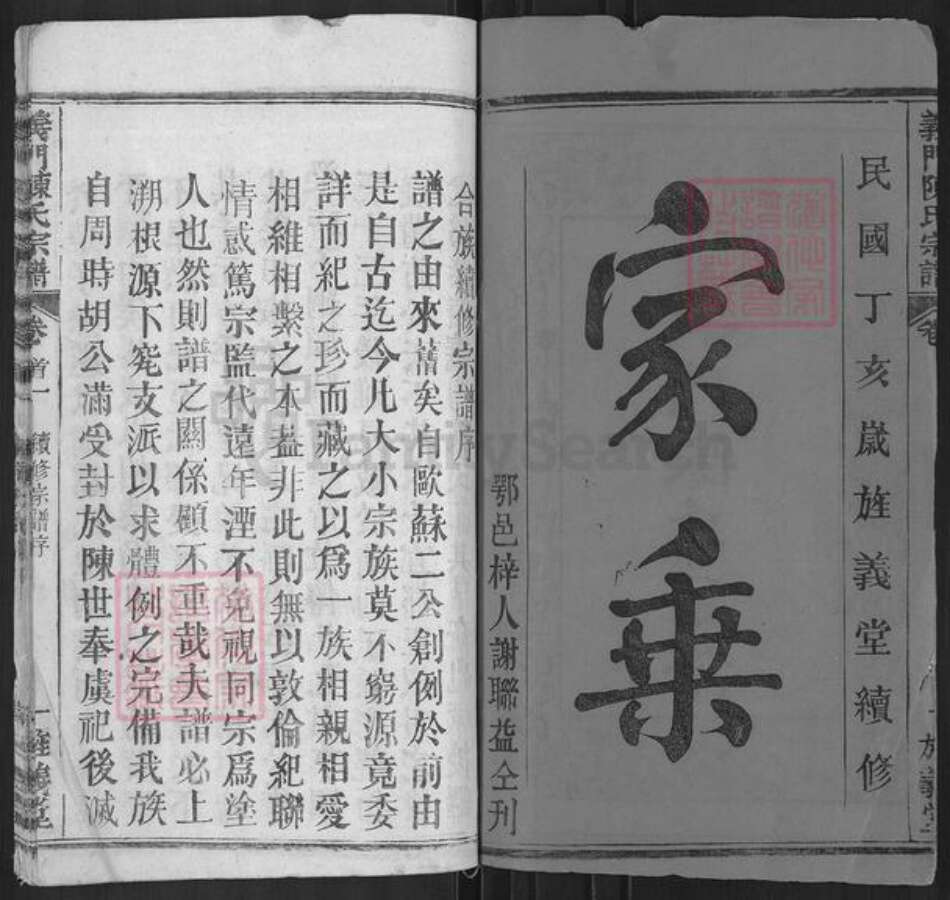 義門陳氏宗譜
卷
民國丁亥歲旌義堂續修
家乘
鄂邑梓人謝聯益仝刊
合族續修宗譜序
譜之由來舊矣自歐蘇二公創例於前由
是自古迄今凡大小宗族莫不窮源竟委
詳而紀之珍而藏之以爲一族相親相愛
相維相繫之本蓋非此則無以敦倫紀聯
情慤篤宗監代遠年湮不免視同宗爲塗
人也然則譜之關係顧不重哉夫譜必上
溯根源下究支派以求體例之完備我族
自周時胡公滿受封於陳世奉虞祀後滅
義門陳氏宗譜
卷首一
續修宗譜序
一
FamilySearch